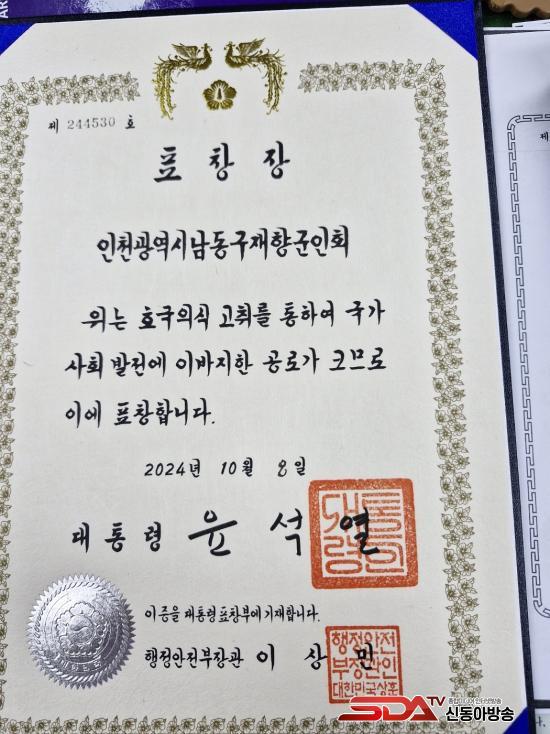 제 244530 호
표 창 장
인천광역시남동구재향군인회
위는 호국의식 고취를 통하여 국가
사회 발전에 이바지한 공로가 크므로
이에 표창합니다.
2024년 10월 8일
대통령 윤 석 열
이 증을 대통령표창부에 기재합니다.
행정안전부장관 이 상 민
행정안전
부장관인
대한민국상훈
제
SDATV
신동아방송